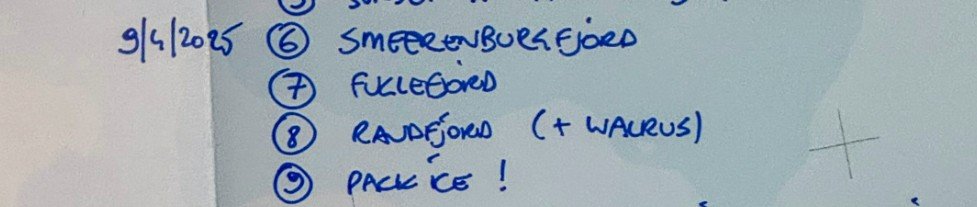 9/4/2025 ⑥ SMEERENBURGFJORD
⑦ FUGLEFJORD
⑧ RAUDFJORD (+ WALRUS)
⑨ PACK ICE !